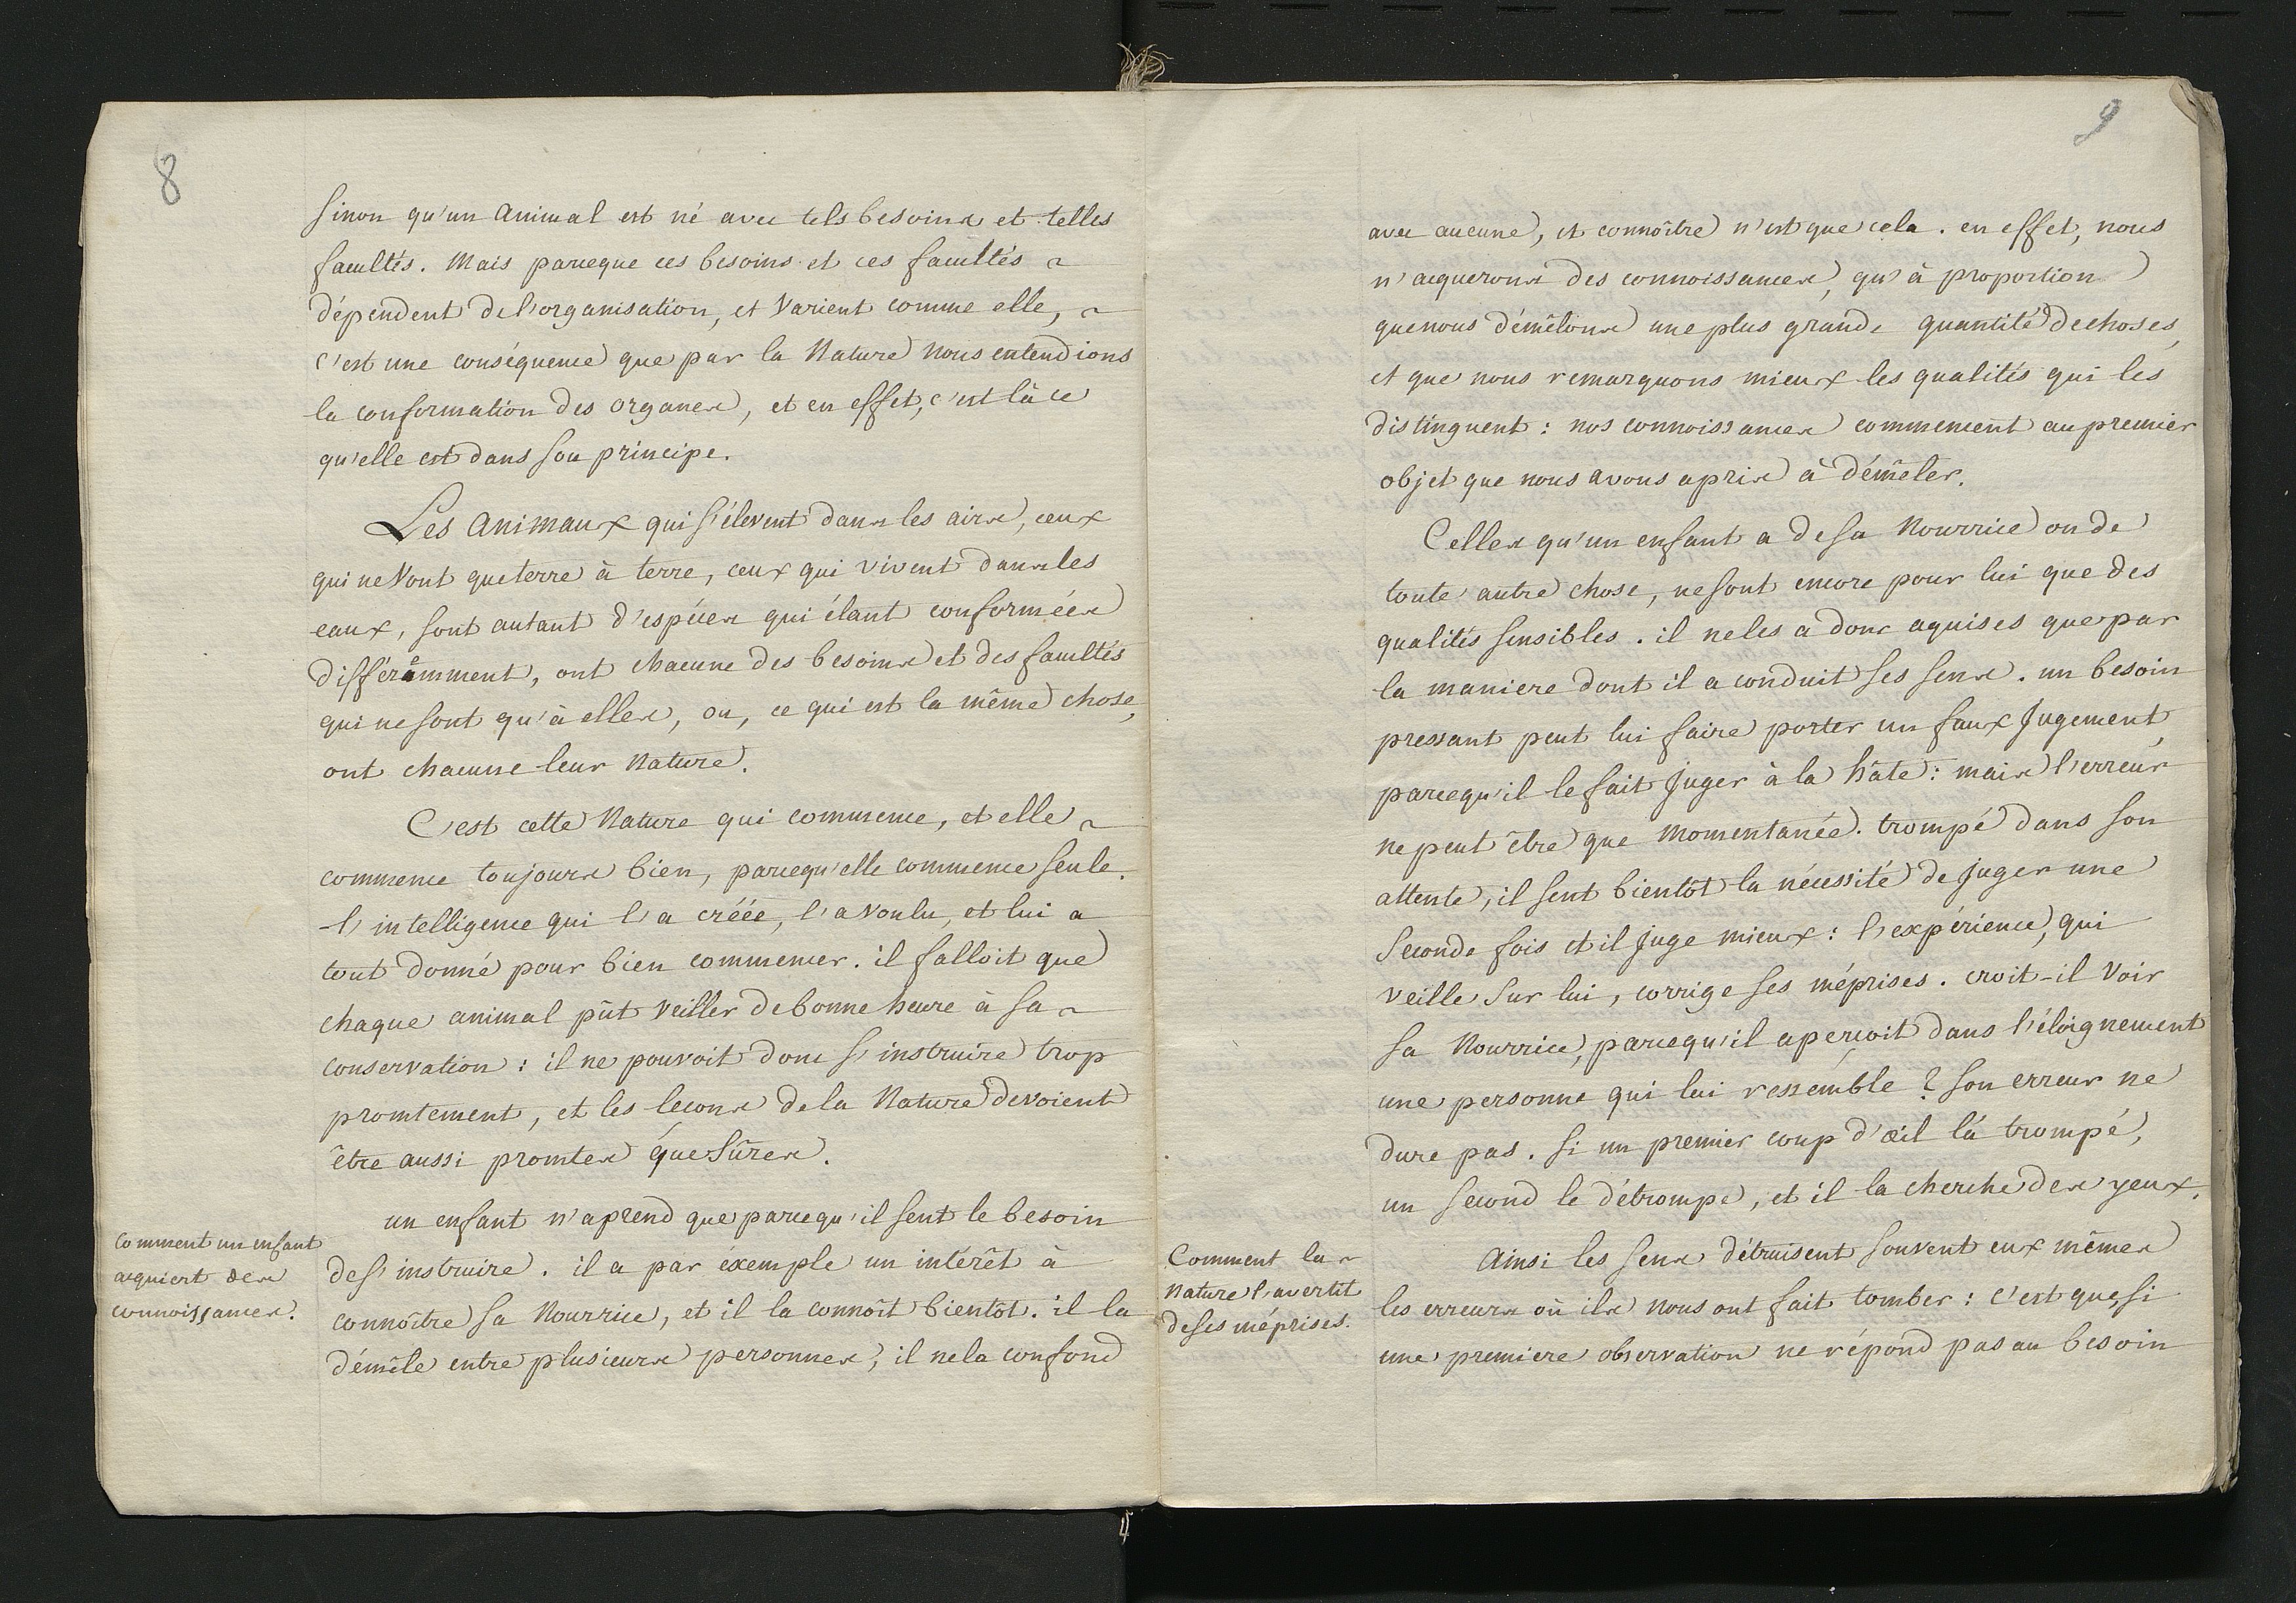 8
sinon qu'un Animal est né avec tels besoins et telles
facultés. Mais parceque ces besoins et ces facultés
dépendent de l'organisation, et Varient comme elle,
c'est une conséquence que par la Nature nous entendions
la conformation des organes, et en effet, c'est là ce
qu'elle est dans son principe.
Les Animaux qui s'élevent dans les airs, ceux
qui ne Vont que terre à terre, ceux qui vivent dans les
eaux, sont autant d'espéces qui étant conformées
différamment, ont chacune des besoins et des facultés
qui ne sont qu'à elles, ou, ce qui est la même chose,
ont chacune leur Nature.
C'est cette Nature qui commence, et elle
commence toujours bien, parcequ'elle commence seule.
l'intelligence qui l'a créée, l'a voulu, et lui a
tout donné pour bien commencer. il falloit que
chaque animal pût veiller de bonne heure à sa
conservation : il ne pouvoit donc s'instruire trop
promtement, et les leçons de la Nature devoient
être aussi promtes que sûres.
un enfant n'aprend que parcequ'il sent le besoin
Comment un enfant
acquiert des
connoissances.
de s'instruire. il a par éxemple un intérêt à
connoître sa Nourrice, et il la connoît bientôt. il la
démêle entre plusieurs personnes, il ne la confond
9
avec aucune, et connoître n'est que cela. en effet, nous
n'acquerons des connoissances, qu'à proportion
que nous démêlons une plus grande quantité de choses,
et que nous remarquons mieux les qualités qui les
distinguent : nos connoissances commencent au premier
objet que nous avons apris à démêler.
Celles qu'un enfant a de sa Nourrice ou de
toute autre chose, ne sont encore pour lui que des
qualités sensibles. il ne les a donc aquises que par
la maniere dont il a conduit ses sens. un besoin
pressant peut lui faire porter un faux Jugement,
parcequ'il le fait Juger à la hâte : mais l'erreur
ne peut être que momentanée. trompé dans son
attente, il sent bientôt la nécessité de Juger une
seconde fois et il Juge mieux : l'expérience, qui
veille sur lui, corrige ses méprises. croit-il Voir
sa Nourrice, parcequ'il aperçoit dans l'éloignement
une personne qui lui ressemble ? son erreur ne
dure pas. si un premier coup d'œil l'a trompé,
un second le détrompe, et il la cherche des yeux.
Comment la
Nature l'avertit
de ses méprises.
Ainsi les sens détruisent souvent eux mêmes
les erreurs où ils nous ont fait tomber : c'est que, si
une premiere observation ne répond pas au besoin